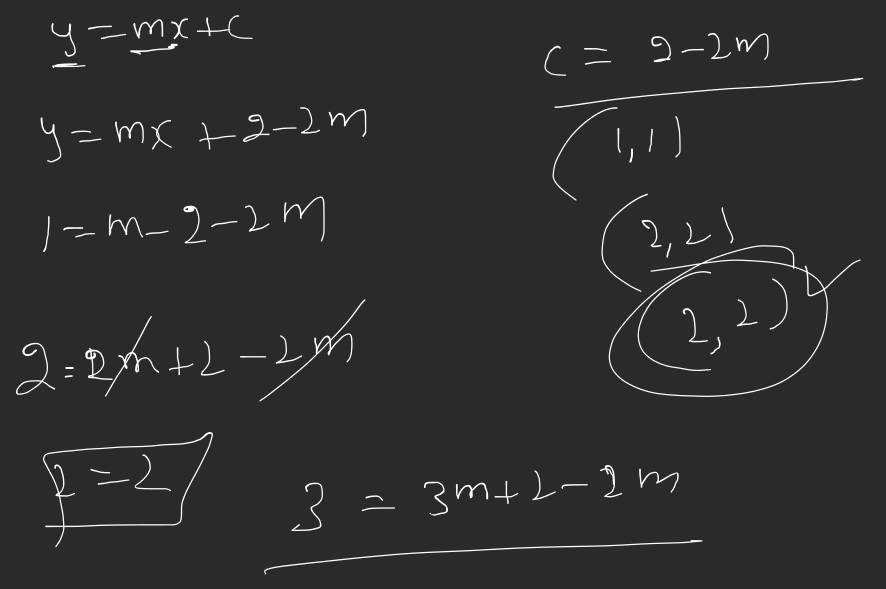 y = mx + c
c = 2 - 2m
y = mx + 2 - 2m
(1, 1)
1 = m - 2 - 2m
(2, 2)
(2, 2)
2 = 2m + 2 - 2m
2 = 2
3 = 3m + 2 - 2m